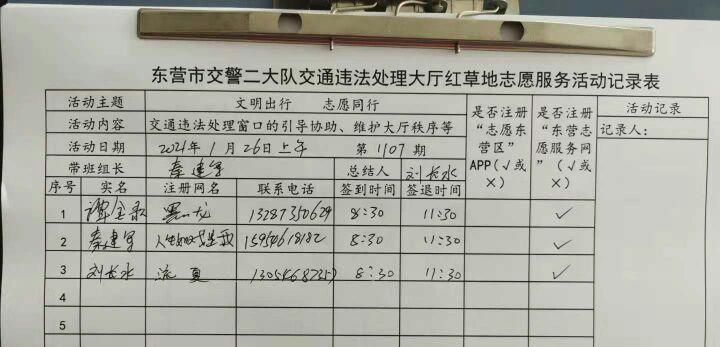 东营市交警二大队交通违法处理大厅红草地志愿服务活动记录表
活动主题 文明出行 志愿同行 是否注册“志愿东营区”APP(√或×) 是否注册“东营志愿服务网”(√或×) 活动记录
活动内容 交通违法处理窗口的引导协助、维护大厅秩序等 记录人:
活动日期 2021年1月26日上午 第1107期
带班组长 秦建军 总结人 刘长水
序号 实名 注册网名 联系电话 签到时间 签退时间
1 谭金录 黑龙 13287350629 8:30 11:30 ✓
2 秦建军 15954618182 8:30 11:30 ✓
3 刘长水 流夏 8:30 11:30 ✓
4
5